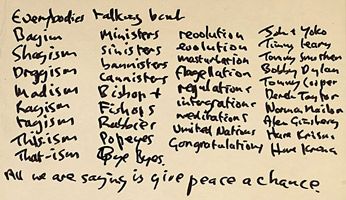 Everybodies talking bout
Bagism
Shagism
Draggism
Madism
Ragism
Tagism
This-ism
That-ism
Ministers
sinisters
bannisters
cannisters
Bishops
Fishops
Popeyes
Bye Byes
revolution
evolution
masturbation
flagellation
regulations
integrations
meditations
United Nations
Congratulations
John & Yoko
Timmy Leary
Tommy Smothers
Bobby Dylan
Tommy Cooper
Derek Taylor
Norman Mailer
Alen Ginsberg
Hare Krisna
Hare Krsna
All we are saying is give peace a chance.